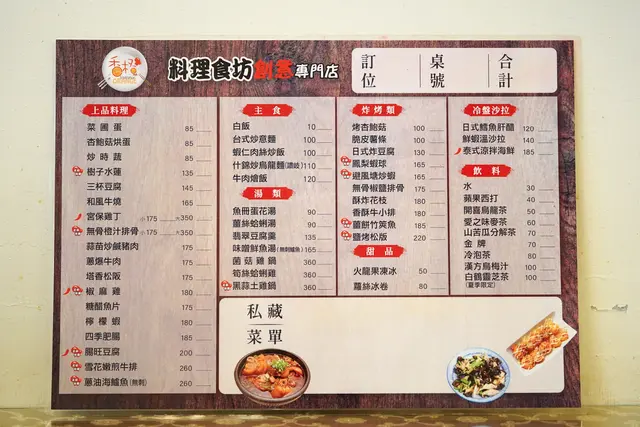 料理食坊創意專門店
訂位
桌號
合計
上品料理
菜圃蛋 85
杏鮑菇烘蛋 85
炒時蔬 85
樹子水蓮 135
三杯豆腐 145
和風牛燒 165
宮保雞丁 小175 大350
無骨橙汁排骨 小175 大350
蒜苗炒鹹豬肉 175
蔥爆牛肉 175
塔香松阪 175
椒麻雞 180
糖醋魚片 175
檸檬蝦 180
四季肥腸 185
腸旺豆腐 200
雪花嫩煎牛排 260
蔥油海鱸魚(無刺) 260
主食
白飯 10
台式炒意麵 100
蝦仁肉絲炒飯 100
什錦炒烏龍麵(濃郁) 110
牛肉燴飯 120
湯類
魚冊蛋花湯 90
薑絲蛤蜊湯 90
翡翠豆腐羹 135
味噌鮮魚湯(無刺鱸魚) 165
菌菇雞鍋 360
筍絲蛤蜊雞 360
黑蒜土雞鍋 360
炸烤類
烤杏鮑菇 100
脆皮薯條 100
日式炸豆腐 130
鳳梨蝦球 160
避風塘炒蝦 165
無骨椒鹽排骨 170
酥炸花枝 180
香酥牛小排 180
薑餅竹筴魚 180
鹽烤松版 220
甜品
火龍果凍冰 50
蘿絲冰卷 80
冷盤沙拉
日式鱈魚肝醋 120
鮮蝦溫沙拉 140
泰式涼拌海鮮 185
飲料
水 30
蘋果西打 40
開喜烏龍茶 50
愛之味麥茶 50
山苦瓜分解茶 70
金牌 70
冷泡茶 80
漢方烏梅汁 100
白鶴靈芝茶 100
(夏季限定)
私藏
菜單